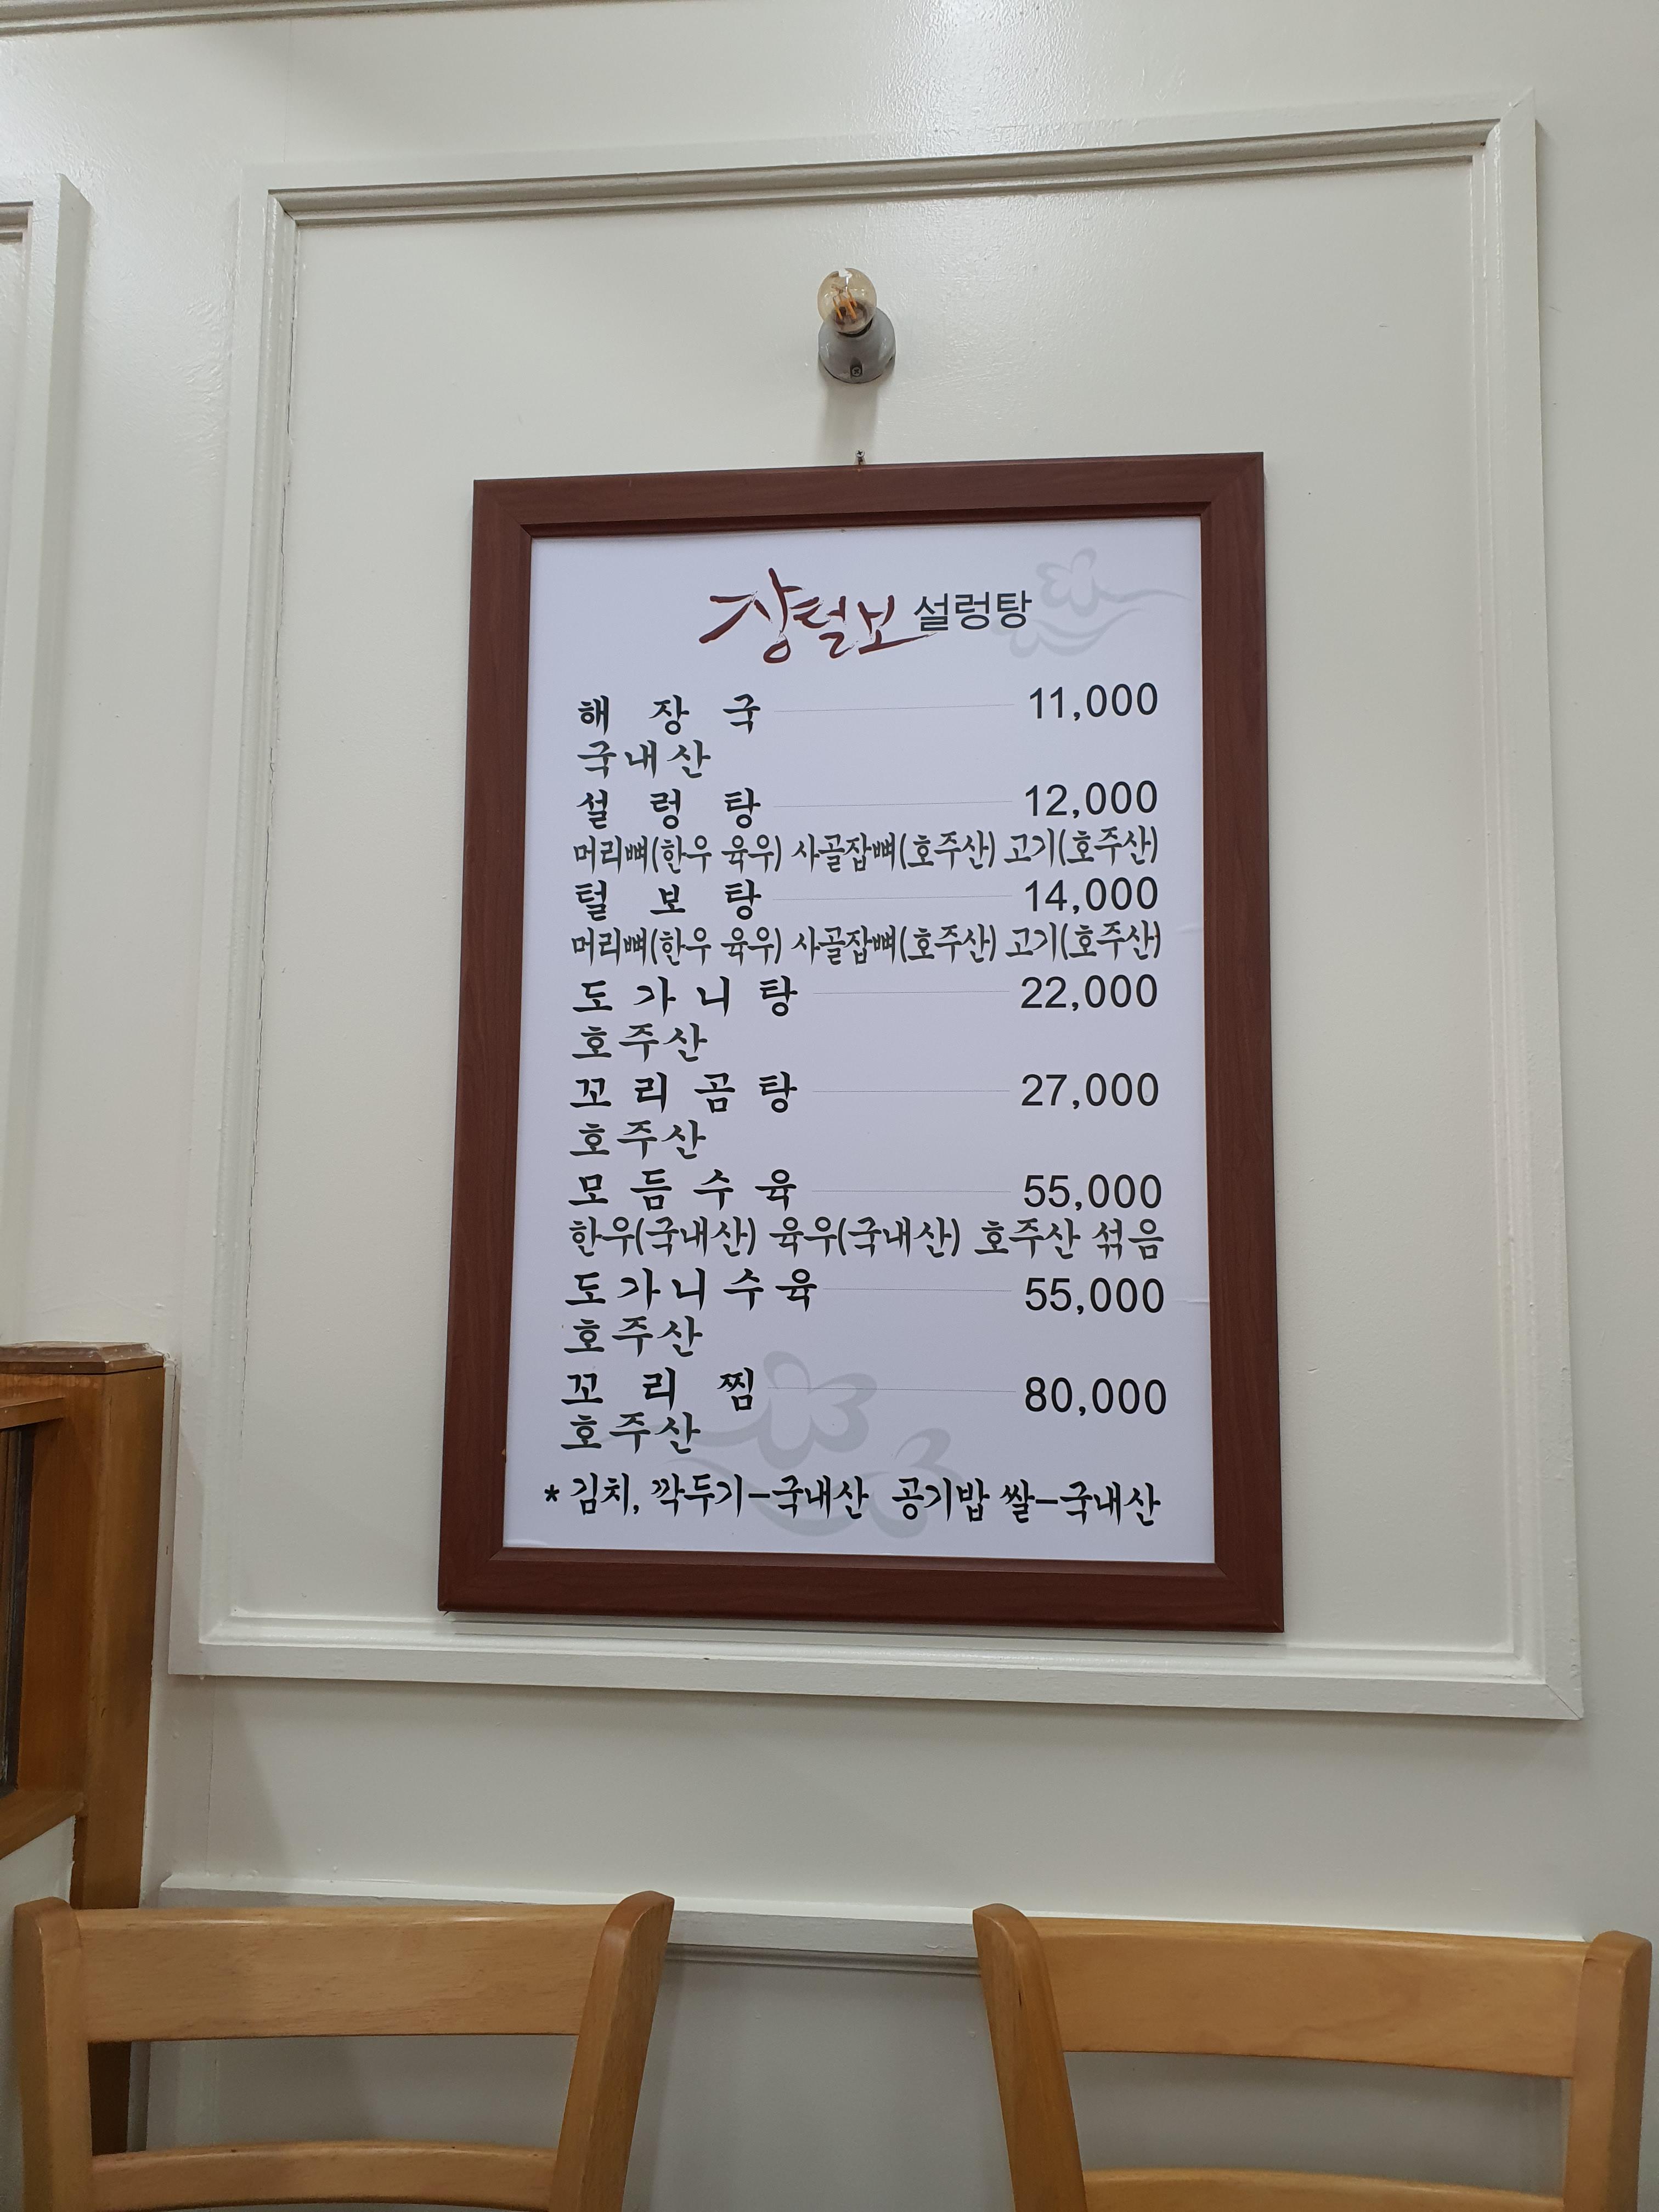 장털보 설렁탕
해 장 국 11,000
국내산
설 렁 탕 12,000
머리뼈(한우 육우) 사골잡뼈(호주산) 고기(호주산)
털 보 탕 14,000
머리뼈(한우 육우) 사골잡뼈(호주산) 고기(호주산)
도 가 니 탕 22,000
호주산
꼬 리 곰 탕 27,000
호주산
모 듬 수 육 55,000
한우(국내산) 육우(국내산) 호주산 섞음
도 가 니 수 육 55,000
호주산
꼬 리 찜 80,000
호주산
* 김치, 깍두기-국내산 공기밥 쌀-국내산